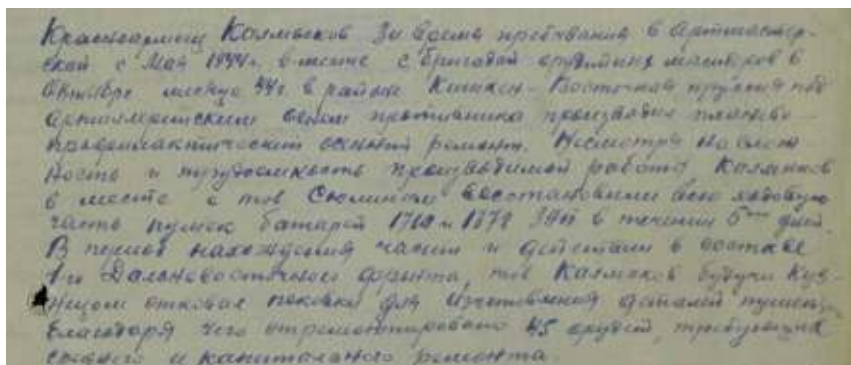 Красноармеец Калмыков За время пребывания в артмастер-
ской с Мая 1944г. вместе с бригадой орудийных мастеров в
Октябре месяце 44г. в районе Восточная пруссия под
артиллерийским огнем противника производил планово-
профилактический осенний ремонт. Несмотря на слож
ность и трудоемкость производимой работы Калмыков
в месте с тов Сюминым восстановили всю ходовую
часть пушек батарей 1760 и 1772 ЗАП в течении 5 дней.
В период нахождения части и действии в составе
1-го Дальневосточного фронта, тов Калмыков будучи Куз-
нецом отковал поковки для изготовления деталей пушек,
благодаря чего отремонтировано 45 орудий, требующих
среднего и капитального ремонта.